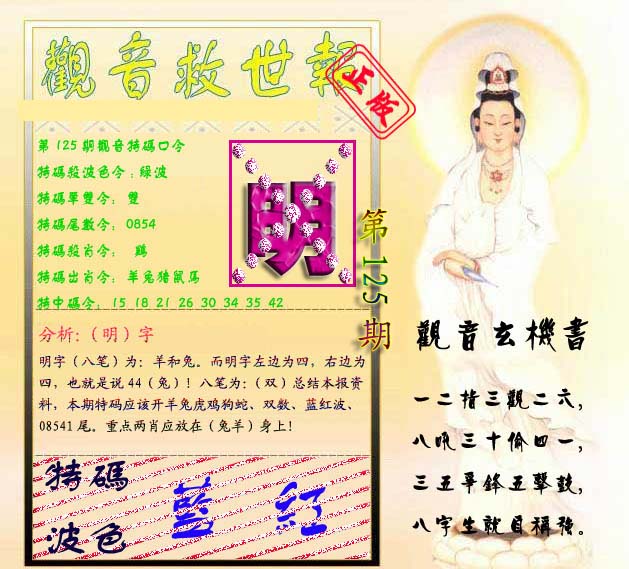 觀音救世報
正版
第125期觀音特碼口令
特碼殺波色令:綠波
特碼單雙令: 雙
特碼尾數令: 0854
特碼殺肖令: 鷄
特碼出肖令: 羊兔猪鼠馬
特中碼令: 15 18 21 26 30 34 35 42
明
第125期
分析:(明)字
明字(八笔)为:羊和兔。而明字左边为四，右边为
四，也就是说44(兔)!八笔为:(双)总结本报资
料，本期特码应该开羊兔虎鸡狗蛇、双数、蓝红波、
08541尾。重点两肖应放在(兔羊)身上!
特碼
波色
藍 紅
觀音玄機書
一二指三觀二六，
八吼三十偷四一，
三五爭鋒五擊鼓，
八字生就自稱強。